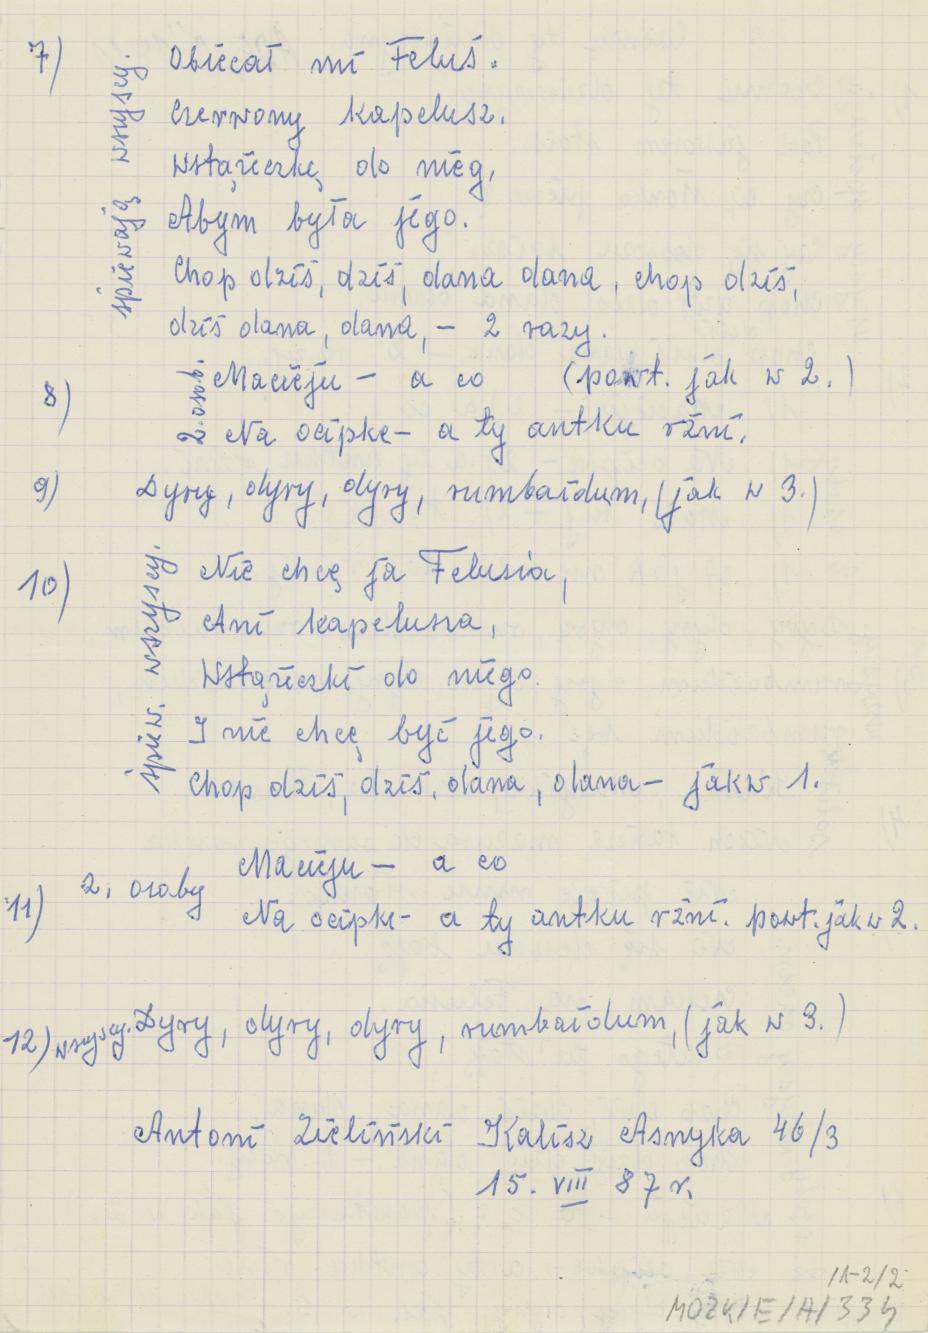 7) śpiewają wszyscy.
Obiecał mi Feluś.
Czerwony kapelusz.
Wstążeczkę do nieg,
Abym była jego.
Chop dziś, dziś, dana dana, chop dziś,
dziś dana, dana, – 2 razy.
8) 2. osob. Macieju – a co (powt. jak w 2.)
Na ocipke – a ty antku rżni.
9) Dyry, dyry, dyry, rumbaidum, (jak w 3.)
10) śpiew. wszyscy.
Nie chcę ja Felusia,
Ani kapelusza,
Wstążeczki do niego.
I nie chcę być jego.
Chop dziś, dziś, dana, dana – jak w 1.
11) 2, osoby Macieju – a co
Na ocipke – a ty antku rżni. powt. jak w 2.
12) wszyscy. Dyry, dyry, dyry, rumbaidum, (jak w 3.)
Antoni Zieliński Kalisz Asnyka 46/3
15. VIII 87 r.
11-2/2
MOZK/E/A/334